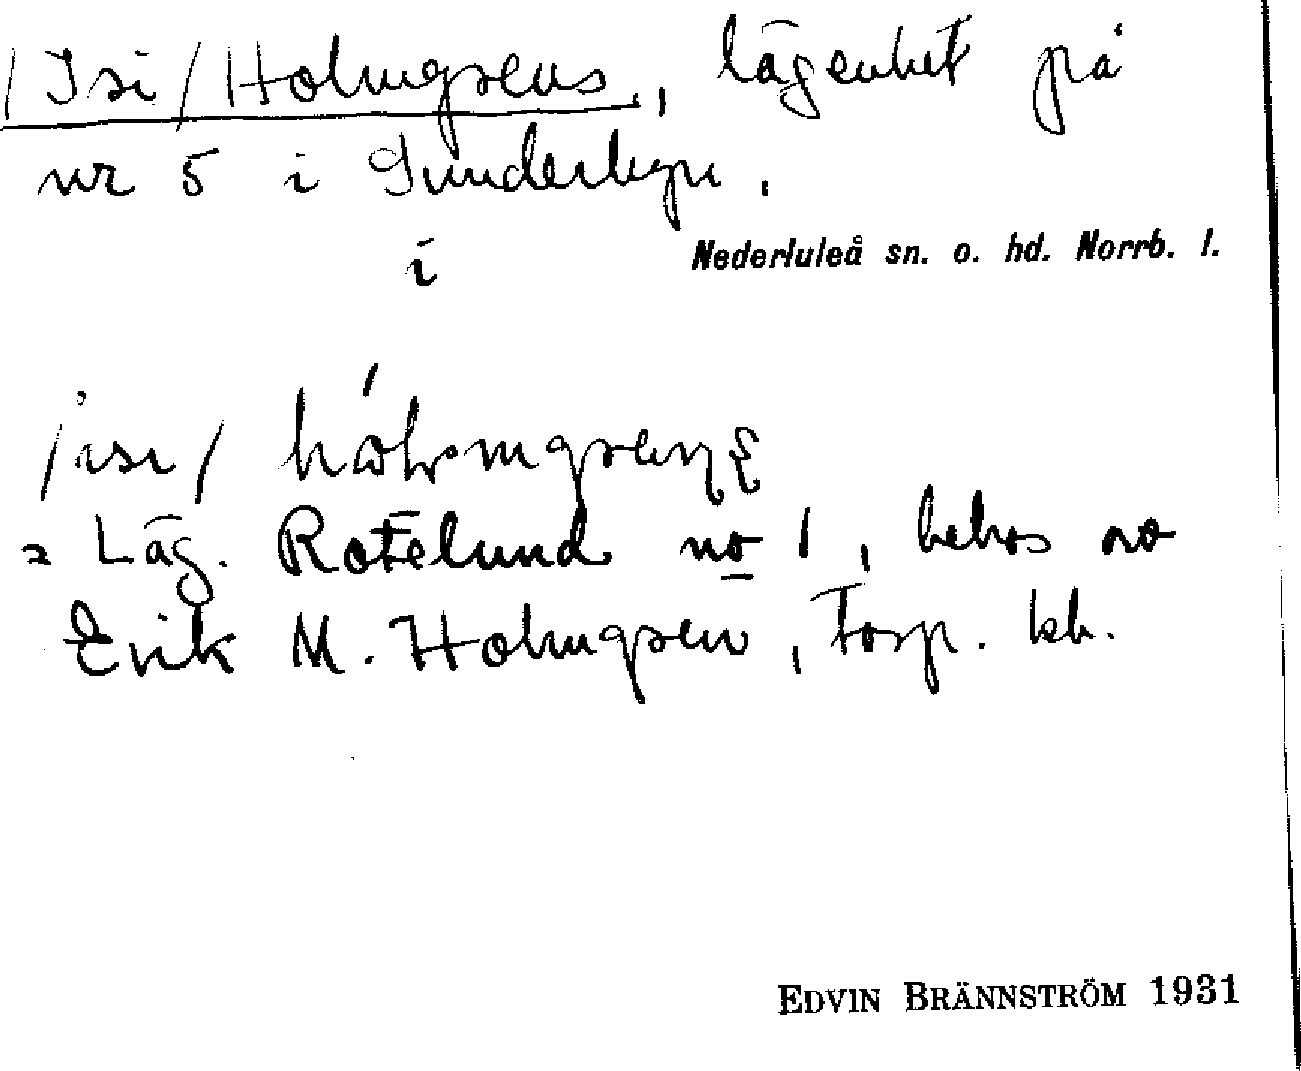 /Isi/Holmgrens, lägenhet på
nr 5 i Sunderbyn.
i Nederluleå sn. o. hd. Norrb. l.
/isi/
= Läg. Rotelund no 1, bebos av
Erik M. Holmgren, Torp. kb.
EDVIN BRÄNNSTRÖM 1931